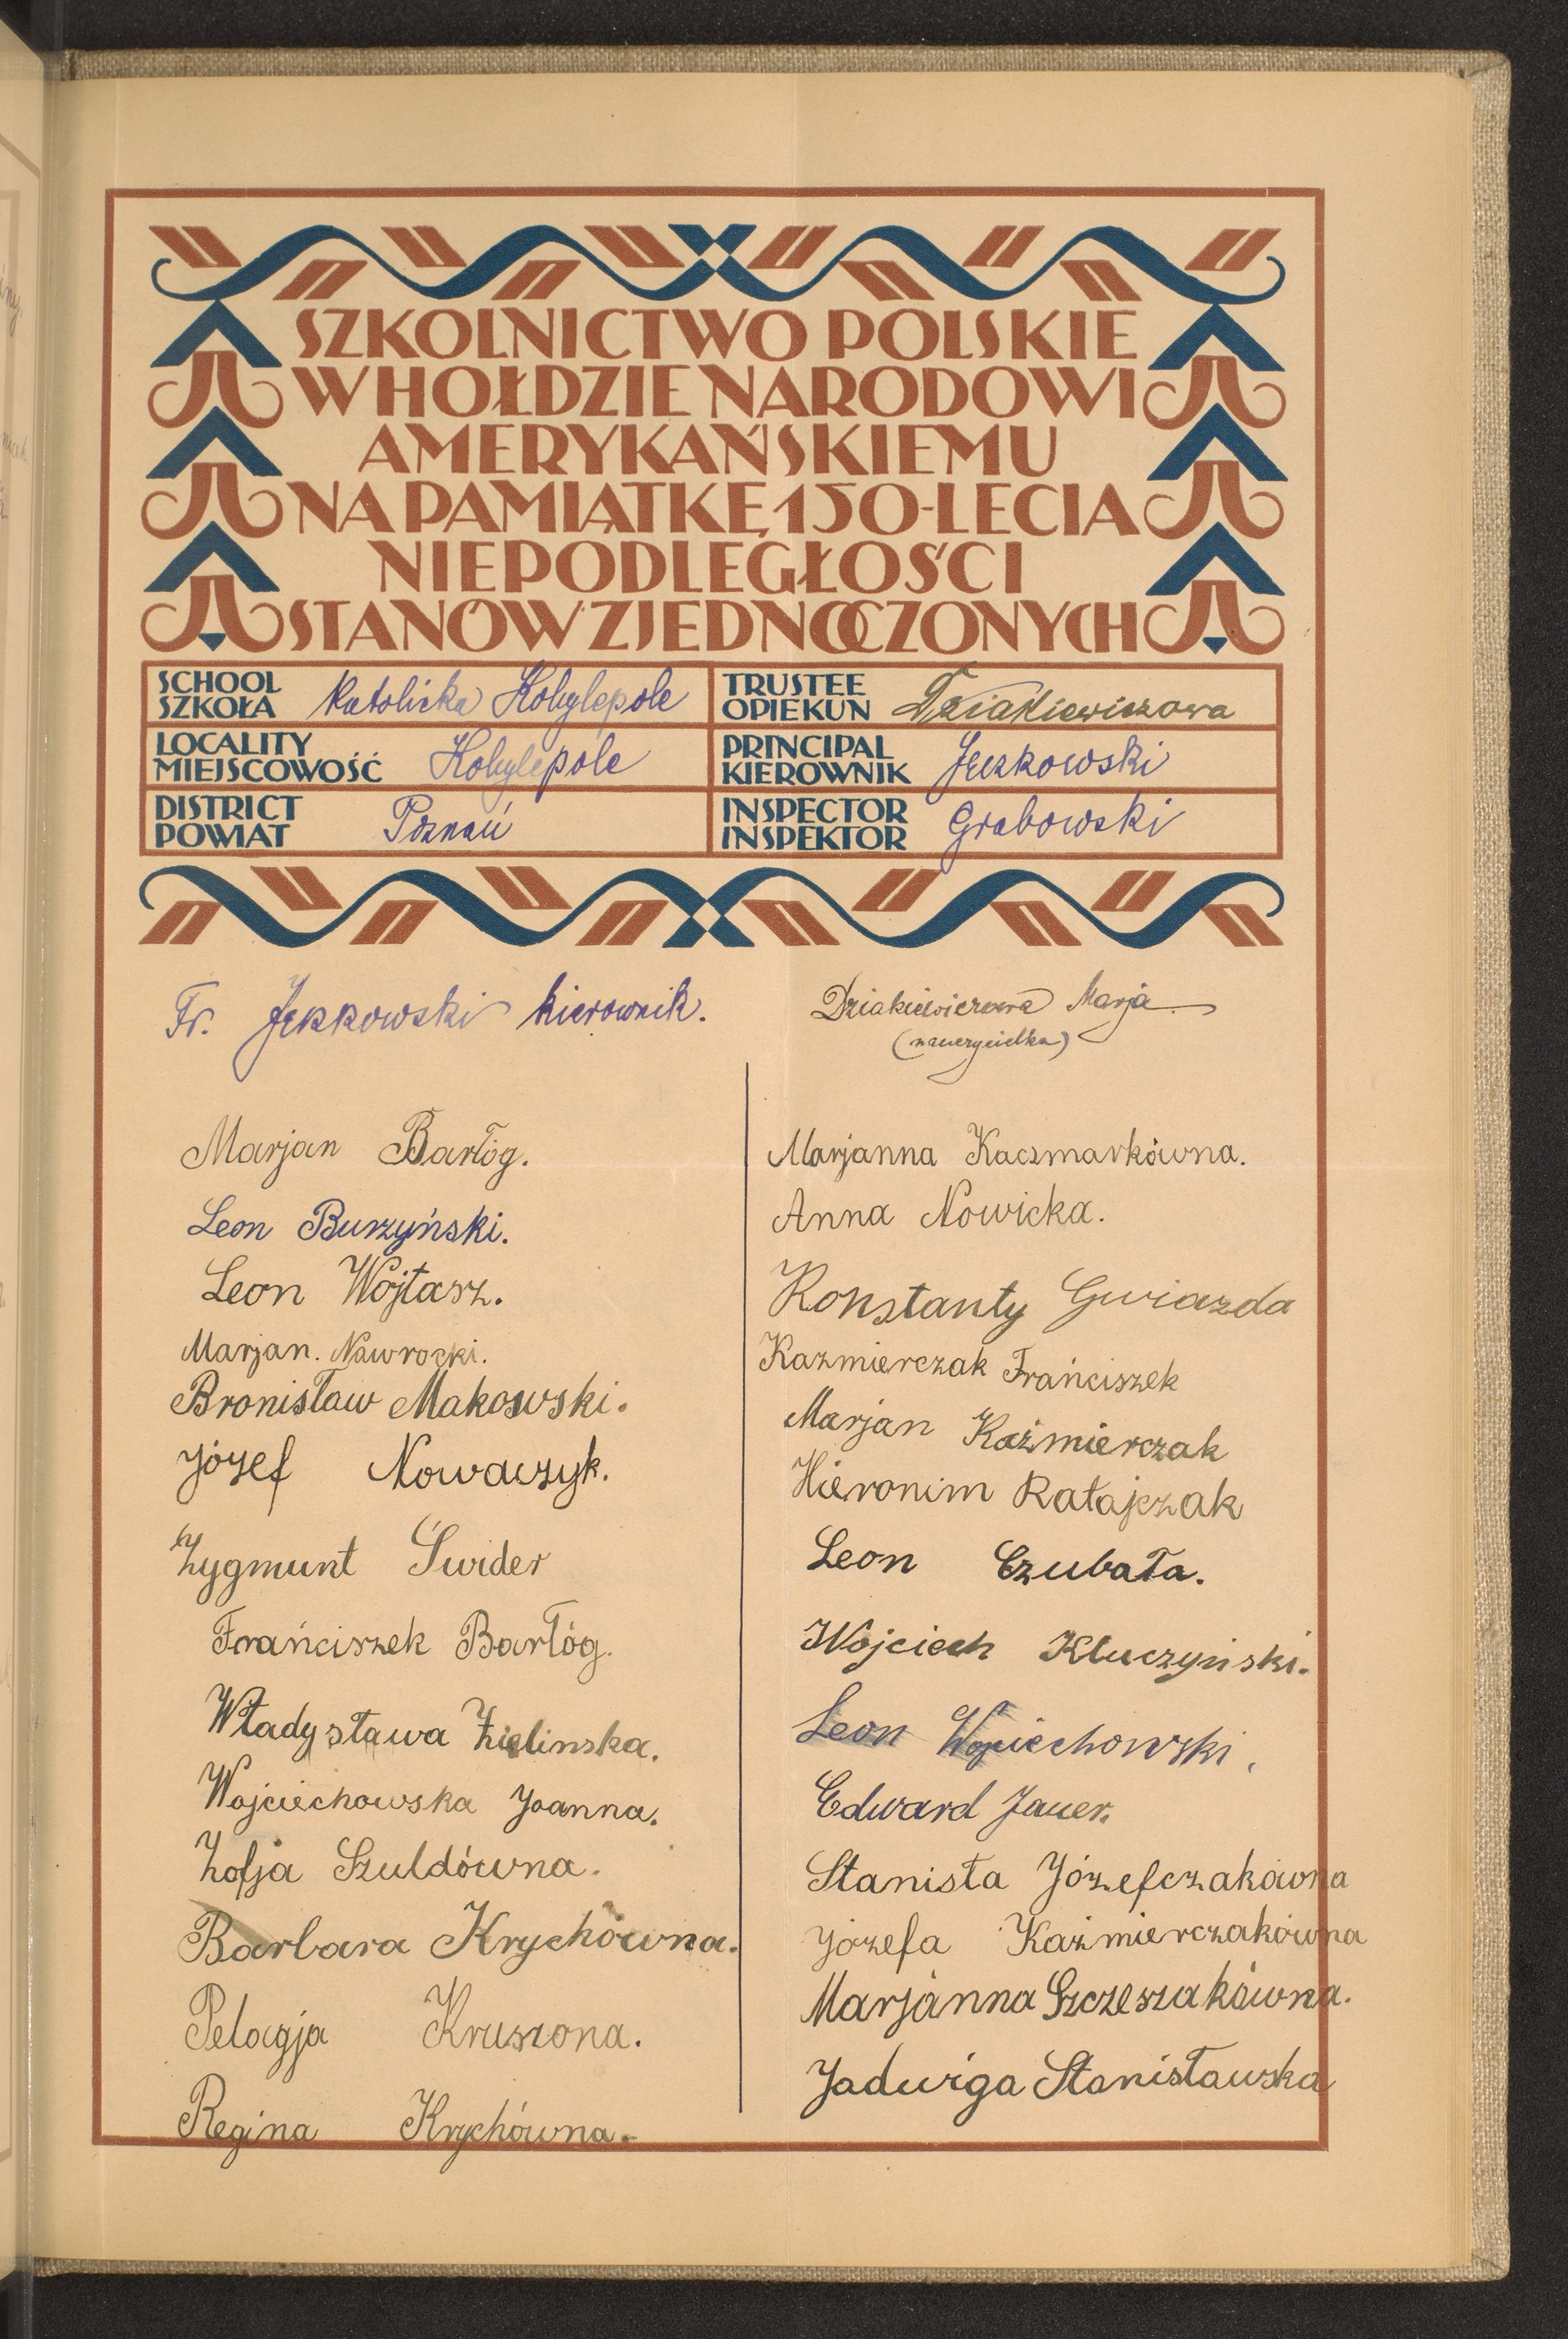 SZKOLNICTWO POLSKIE
W HOŁDZIE NARODOWI
AMERYKAŃSKIEMU
NA PAMIĄTKĘ 150-LECIA
NIEPODLEGŁOŚCI
STANÓW ZJEDNOCZONYCH
SCHOOL
SZKOŁA Katolicka Kobylepole
TRUSTEE
OPIEKUN Dziakiewiczowa
LOCALITY
MIEJSCOWOŚĆ Kobylepole
PRINCIPAL
KIEROWNIK
DISTRICT
POWIAT Poznań
INSPECTOR
INSPEKTOR Grabowski
Fr. kierownik.
Dziakiewiczowa Marja
(nauczycielka)
Marjan Bartóg.
Leon Burzyński.
Leon Wojtasz.
Marjan. Nawrocki.
Bronisław Makowski.
Józef Nowaczyk.
Zygmunt Świder
Frańciszek Barłóg.
Władysława Zielinska.
Wojciechowska Joanna.
Zofja Szuldówna.
Barbara Krychówna.
Pelagja Kruszona.
Regina Krychówna.
Marjanna Kaczmarkówna.
Anna Nowicka.
Konstanty Gwiazda
Kazmierczak Frańciszek
Marjan Kaźmierczak
Hieronim Ratajczak
Leon Czubała.
Wojciech Kluczyński.
Leon Wojciechowski.
Edward Jauer.
Stanisła Józefczakówna
Józefa Kaźmierczakówna
Marjanna Szczeszakówna.
Jadwiga Stanisławska